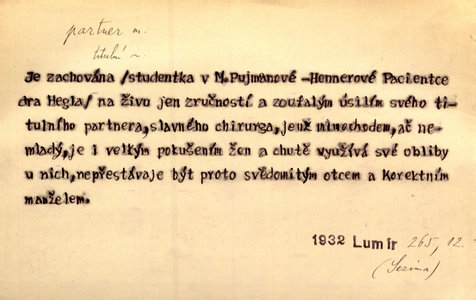 partner m.
titulní ~
Je zachována /studentka v M.Pujmanové -Hennerové Pacientce
dra Hegla/ na živu jen zručností a zoufalým úsilím svého ti-
tulního partnera,slavného chirurga,jenž mimochodem,ač ne-
mladý,je i velkým pokušením žen a chutě využívá své obliby
u nich,nepřestávaje být proto svědomitým otcem a korektním
manželem.
1932 Lumír 265, 12.
(Sezima)